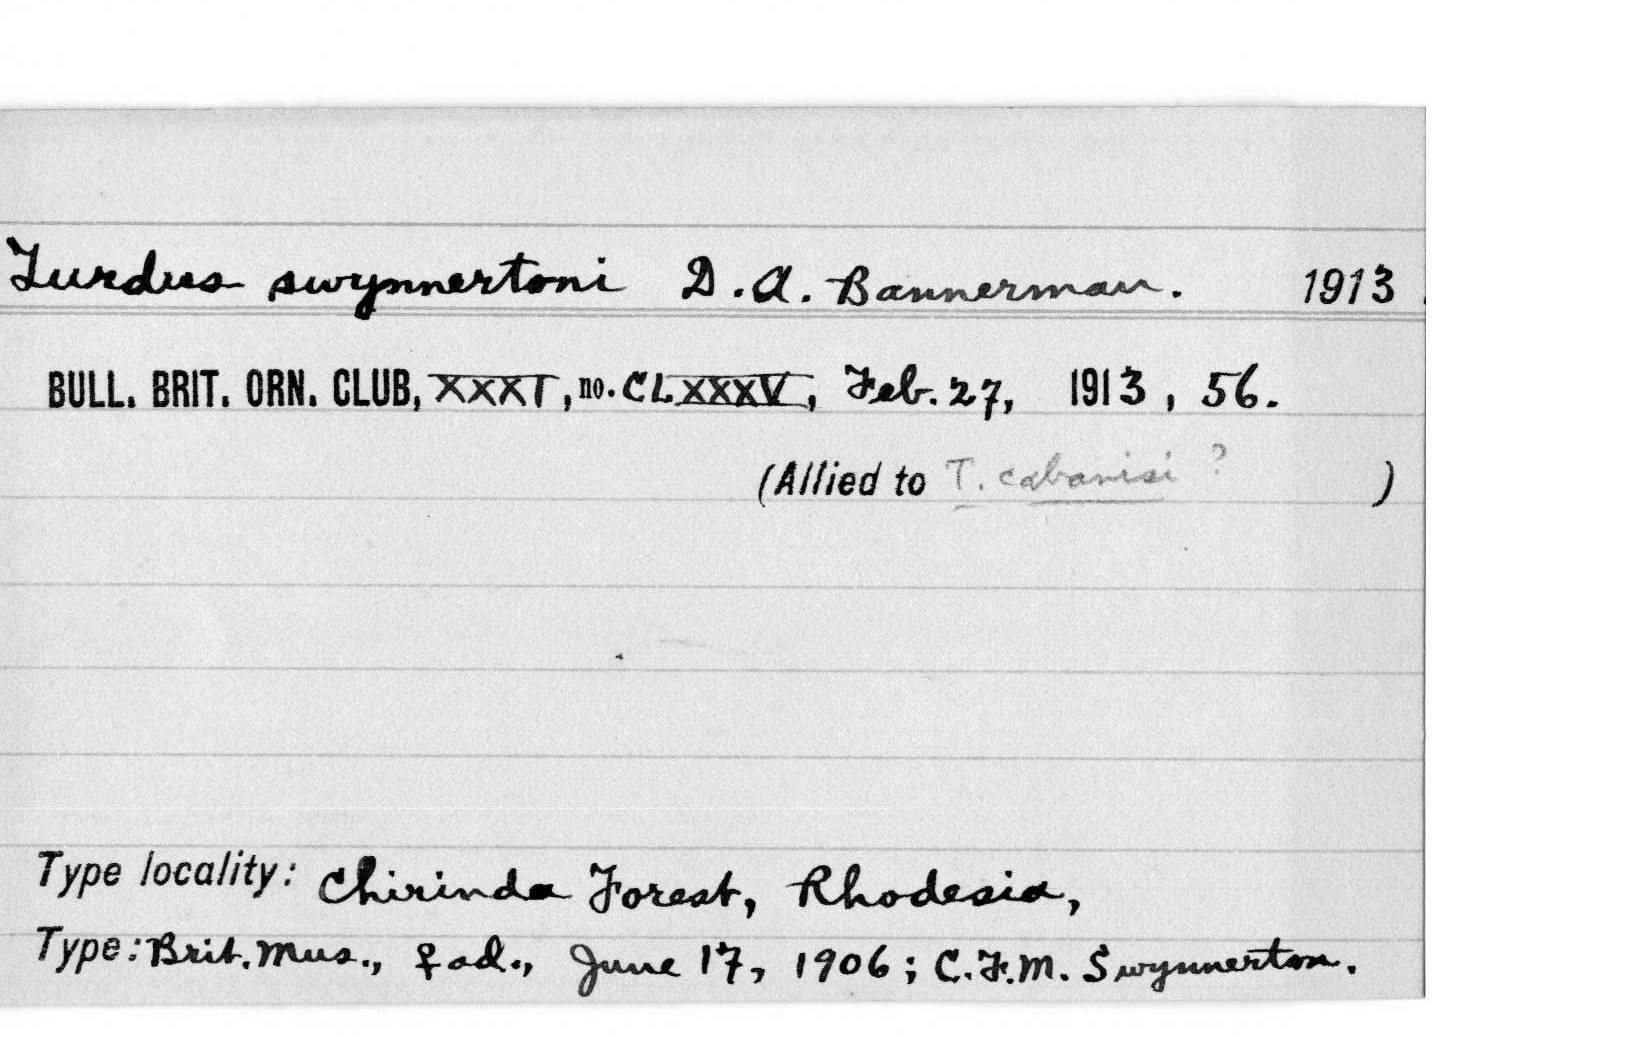 Turdus swynnertoni D. A. Bannerman. 1913.
BULL. BRIT. ORN. CLUB, XXXI, no. CLXXXV, Feb. 27, 1913, 56.
(Allied to T. cabanisi ? )
Type locality: Chirinda Forest, Rhodesia,
Type: Brit. Mus., ♀ ad., June 17, 1906; C. F. M. Swynnerton.